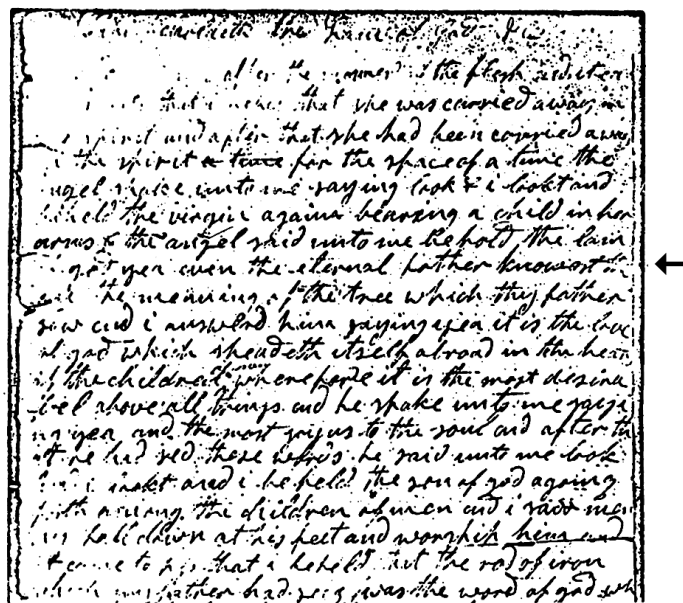 the grace of god
after the manner of the flesh and it ca
that she was carried away in
spirit and after that she had been carried awa
the spirit a time for the space of a time the
angel spake unto me saying look & i lookt and
beheld the virgin again bearing a child in her
arms & the angel said unto me behold the lam
god yea even the eternal father knowest th
the meaning of the tree which thy father
saw and i answerd him saying yea it is the love
of god which sheadeth itself abroad in the hear
of the children of men wherefore it is the most desira
bel above all things and he spake unto me sayi
ng yea and the most joyus to the soul and after th
he had sed these words he said unto me look
i lookt and i beheld the son of god agoing
forth among the children of men and i saw men
fall down at his feet and worship him and
it came to pass that i beheld that the rod of iron
which my father had seen was the word of god wh